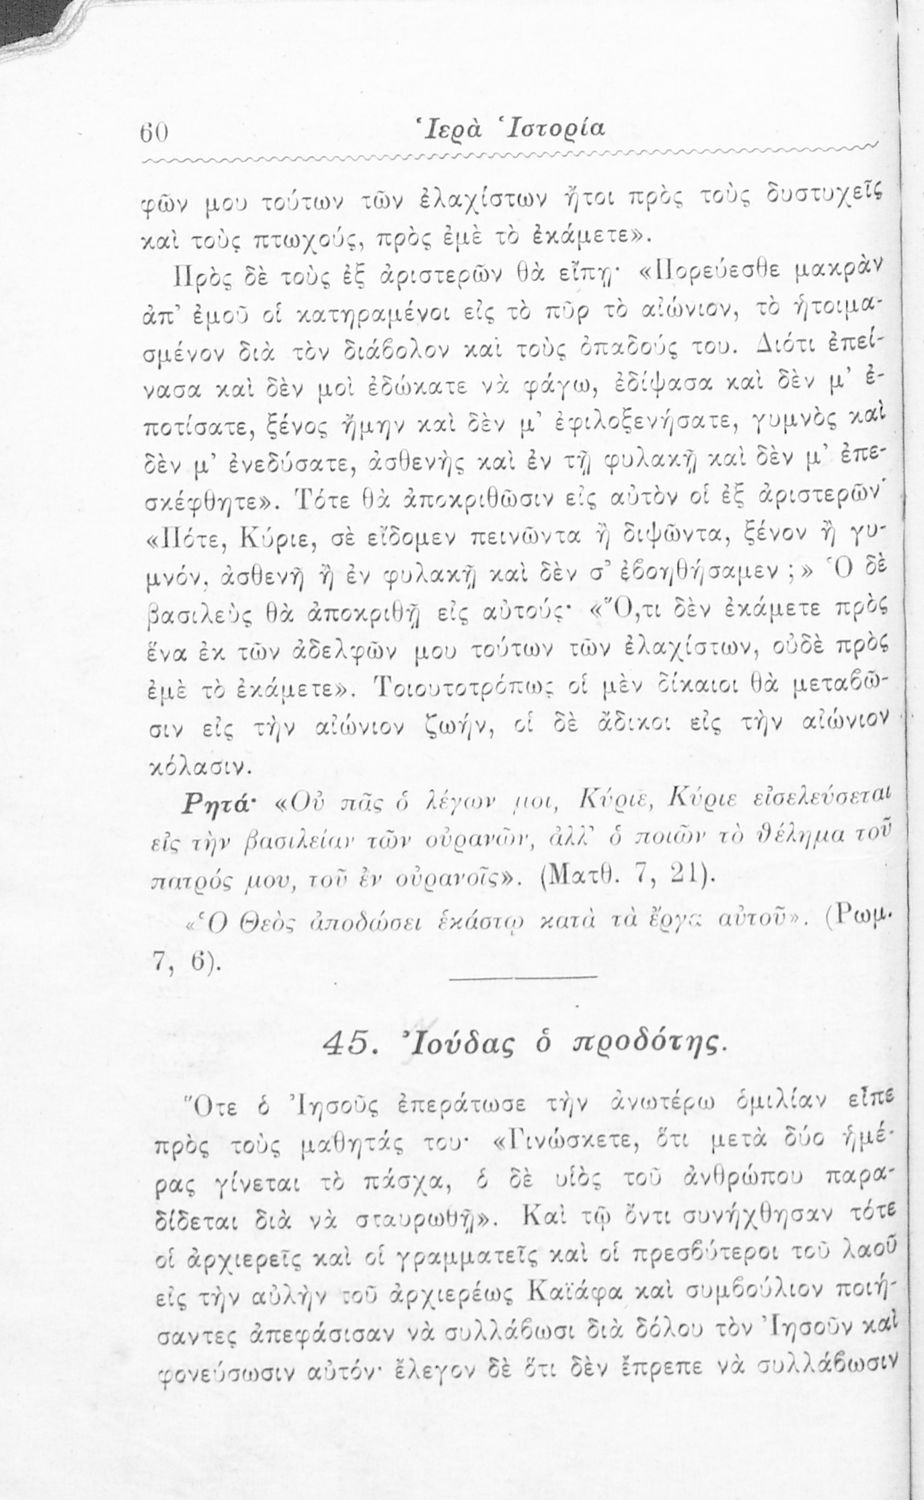 60 Ἱερὰ Ἱστορία
φῶν μου τούτων τῶν ἐλαχίστων ἤτοι πρὸς τοὺς δυστυχεῖς
καὶ τοὺς πτωχούς, πρὸς ἐμὲ τὸ ἐκάμετε».
Πρὸς δὲ τοὺς ἐξ ἀριστερῶν θὰ εἴπῃ· «Πορεύεσθε μακρὰν
ἀπ’ ἐμοῦ οἱ κατηραμένοι εἰς τὸ πῦρ τὸ αἰώνιον, τὸ ἡτοιμα-
σμένον διὰ τὸν διάβολον καὶ τοὺς ὀπαδούς του. Διότι ἐπεί-
νασα καὶ δὲν μοὶ ἐδώκατε νὰ φάγω, ἐδίψασα καὶ δὲν μ’ ἐ-
ποτίσατε, ξένος ἤμην καὶ δὲν μ’ ἐφιλοξενήσατε, γυμνὸς καὶ
δὲν μ’ ἐνεδύσατε, ἀσθενὴς καὶ ἐν τῇ φυλακῇ καὶ δὲν μ’ ἐπε-
σκέφθητε». Τότε θὰ ἀποκριθῶσιν εἰς αὐτὸν οἱ ἐξ ἀριστερῶν·
«Πότε, Κύριε, σὲ εἴδομεν πεινῶντα ἢ διψῶντα, ξένον ἢ γυ-
μνόν, ἀσθενῆ ἢ ἐν φυλακῇ καὶ δὲν σ’ ἐβοηθήσαμεν ;» Ὁ δὲ
βασιλεὺς θὰ ἀποκριθῇ εἰς αὐτούς· «Ὅ,τι δὲν ἐκάμετε πρὸς
ἕνα ἐκ τῶν ἀδελφῶν μου τούτων τῶν ἐλαχίστων, οὐδὲ πρὸς
ἐμὲ τὸ ἐκάμετε». Τοιουτοτρόπως οἱ μὲν δίκαιοι θὰ μεταβῶ-
σιν εἰς τὴν αἰώνιον ζωήν, οἱ δὲ ἄδικοι εἰς τὴν αἰώνιον
κόλασιν.
Ρητά· «Οὐ πᾶς ὁ λέγων μοι, Κύριε, Κύριε εἰσελεύσεται
εἰς τὴν βασιλείαν τῶν οὐρανῶν, ἀλλ’ ὁ ποιῶν τὸ θέλημα τοῦ
πατρός μου, τοῦ ἐν οὐρανοῖς». (Ματθ. 7, 21).
«Ὁ Θεὸς ἀποδώσει ἑκάστῳ κατὰ τὰ ἔργα αὐτοῦ». (Ρωμ.
7, 6).
45. Ἰούδας ὁ προδότης.
Ὅτε ὁ Ἰησοῦς ἐπεράτωσε τὴν ἀνωτέρω ὁμιλίαν εἶπε
πρὸς τοὺς μαθητάς του· «Γινώσκετε, ὅτι μετὰ δύο ἡμέ-
ρας γίνεται τὸ πάσχα, ὁ δὲ υἱὸς τοῦ ἀνθρώπου παρα-
δίδεται διὰ νὰ σταυρωθῇ». Καὶ τῷ ὄντι συνήχθησαν τότε
οἱ ἀρχιερεῖς καὶ οἱ γραμματεῖς καὶ οἱ πρεσβύτεροι τοῦ λαοῦ
εἰς τὴν αὐλὴν τοῦ ἀρχιερέως Καϊάφα καὶ συμβούλιον ποιή-
σαντες ἀπεφάσισαν νὰ συλλάβωσι διὰ δόλου τὸν Ἰησοῦν καὶ
φονεύσωσιν αὐτόν· ἔλεγον δὲ ὅτι δὲν ἔπρεπε νὰ συλλάβωσιν